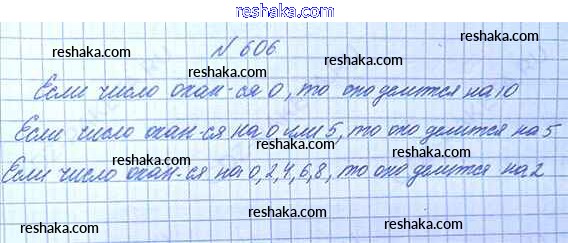 reshaka.com
reshaka.com
№ 606
reshaka.com
reshaka.com
Если число окан-ся 0, то оно делится на 10
reshaka.com reshaka.com
Если число окан-ся на 0 или 5, то оно делится на 5
reshaka.com
Если число окан-ся на 0, 2, 4, 6, 8, то оно делится на 2
reshaka.com reshaka.com
reshaka.com reshaka.com